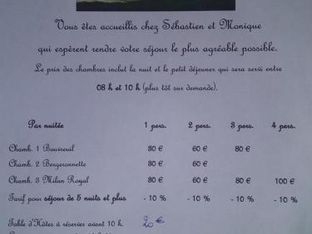 Vous êtes accueillis chez Sébastien et Monique
qui espèrent rendre votre séjour le plus agréable possible.
Le prix des chambres inclut la nuit et le petit déjeuner qui sera servi entre
08 h et 10 h (plus tôt sur demande).
Par nuitée 1 pers. 2 pers. 3 pers. 4 pers.
Chamb. 1 Bouvreuil 80 € 60 € 80 €
Chamb. 2 Bergeronnette 60 €
Chamb. 3 Milan Royal 80 € 60 € 80 € 100 €
Tarif pour séjour de 5 nuits et plus - 10 % - 10 % - 10 % - 10 %
Table d'Hôtes à réserver avant 10 h. 20 €